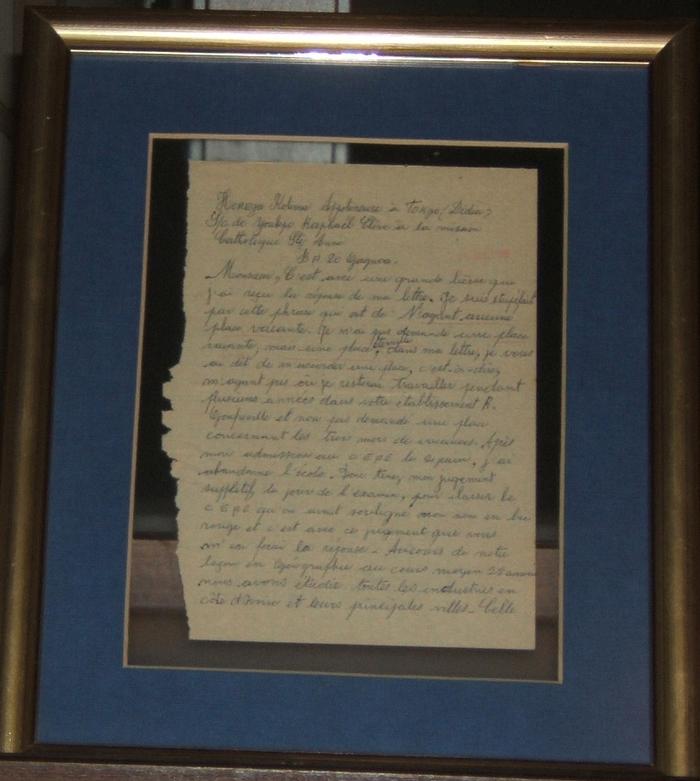 Kokma à Tongo (Dida)
S/c de Raphaël Elève à la mission
Catholique Ste Anne
B.P. 20 Gagnoa.
Monsieur, C'est avec une grande que
j'ai reçu la réponse de ma lettre. Je suis stupéfait
par cette phrase qui est de N'ayant aucune
place vacante. Je n'ai pas demandé une place
vacante, mais une place éternelle, dans ma lettre, je vous
ai dit de m'accorder une place, c'est-à-dire,
m'ayant pris où je resterai travailler pendant
plusieurs années dans votre établissement R.
Gonfreville et non pas demandé une place
concernant les trois mois de vacances. Après
mon admission au C E P E le 2 juin, j'ai
abandonné l'école. Donc tenez mon jugement
supplétif le jour de l'examen, pour classer le
C E P E qui on avait souligné mon nom en bic
rouge et c'est avec ce jugement que vous
m'en ferai la réponse. Aucours de notre
leçon en Géographie au cours moyen 2è année
nous avons étudié toutes les industries en
côte d'Ivoire et leurs principales villes. Celle